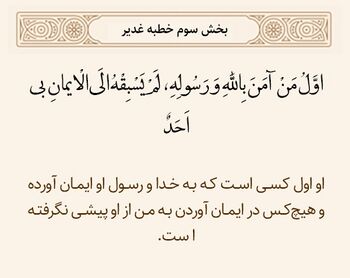 بخش سوم خطبه غدیر
اَوَّلُ مَنْ آمَنَ بِاللهِ وَ رَسُولِهِ، لَمْ يَسْبِقْهُ اِلَى الْايمانِ بی
اَحَدٌ
او اول کسی است که به خدا و رسول او ایمان آورده
و هیچ‌کس در ایمان آوردن به من از او پیشی نگرفته
ا ست.